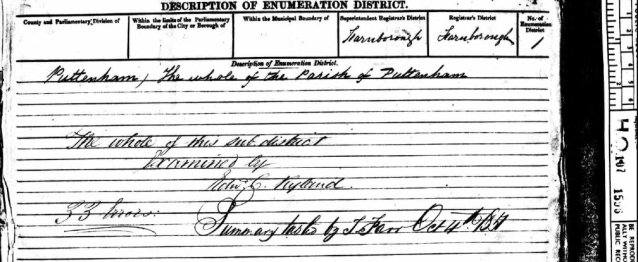 DESCRIPTION OF ENUMERATION DISTRICT.
County and Parliamentary Division of
Within the limits of the Parliamentary Boundary of the City or Borough of
Within the Municipal Boundary of
Superintendent Registrar's District
Registrar's District
No. of Enumeration District
Farnborough
Farnborough
1
Description of Enumeration District.
Puttenham, The whole of the Parish of Puttenham
The whole of this sub district
Examined by
33 hours.
Summary tasks by Farr Oct 4th
HO 107
1593